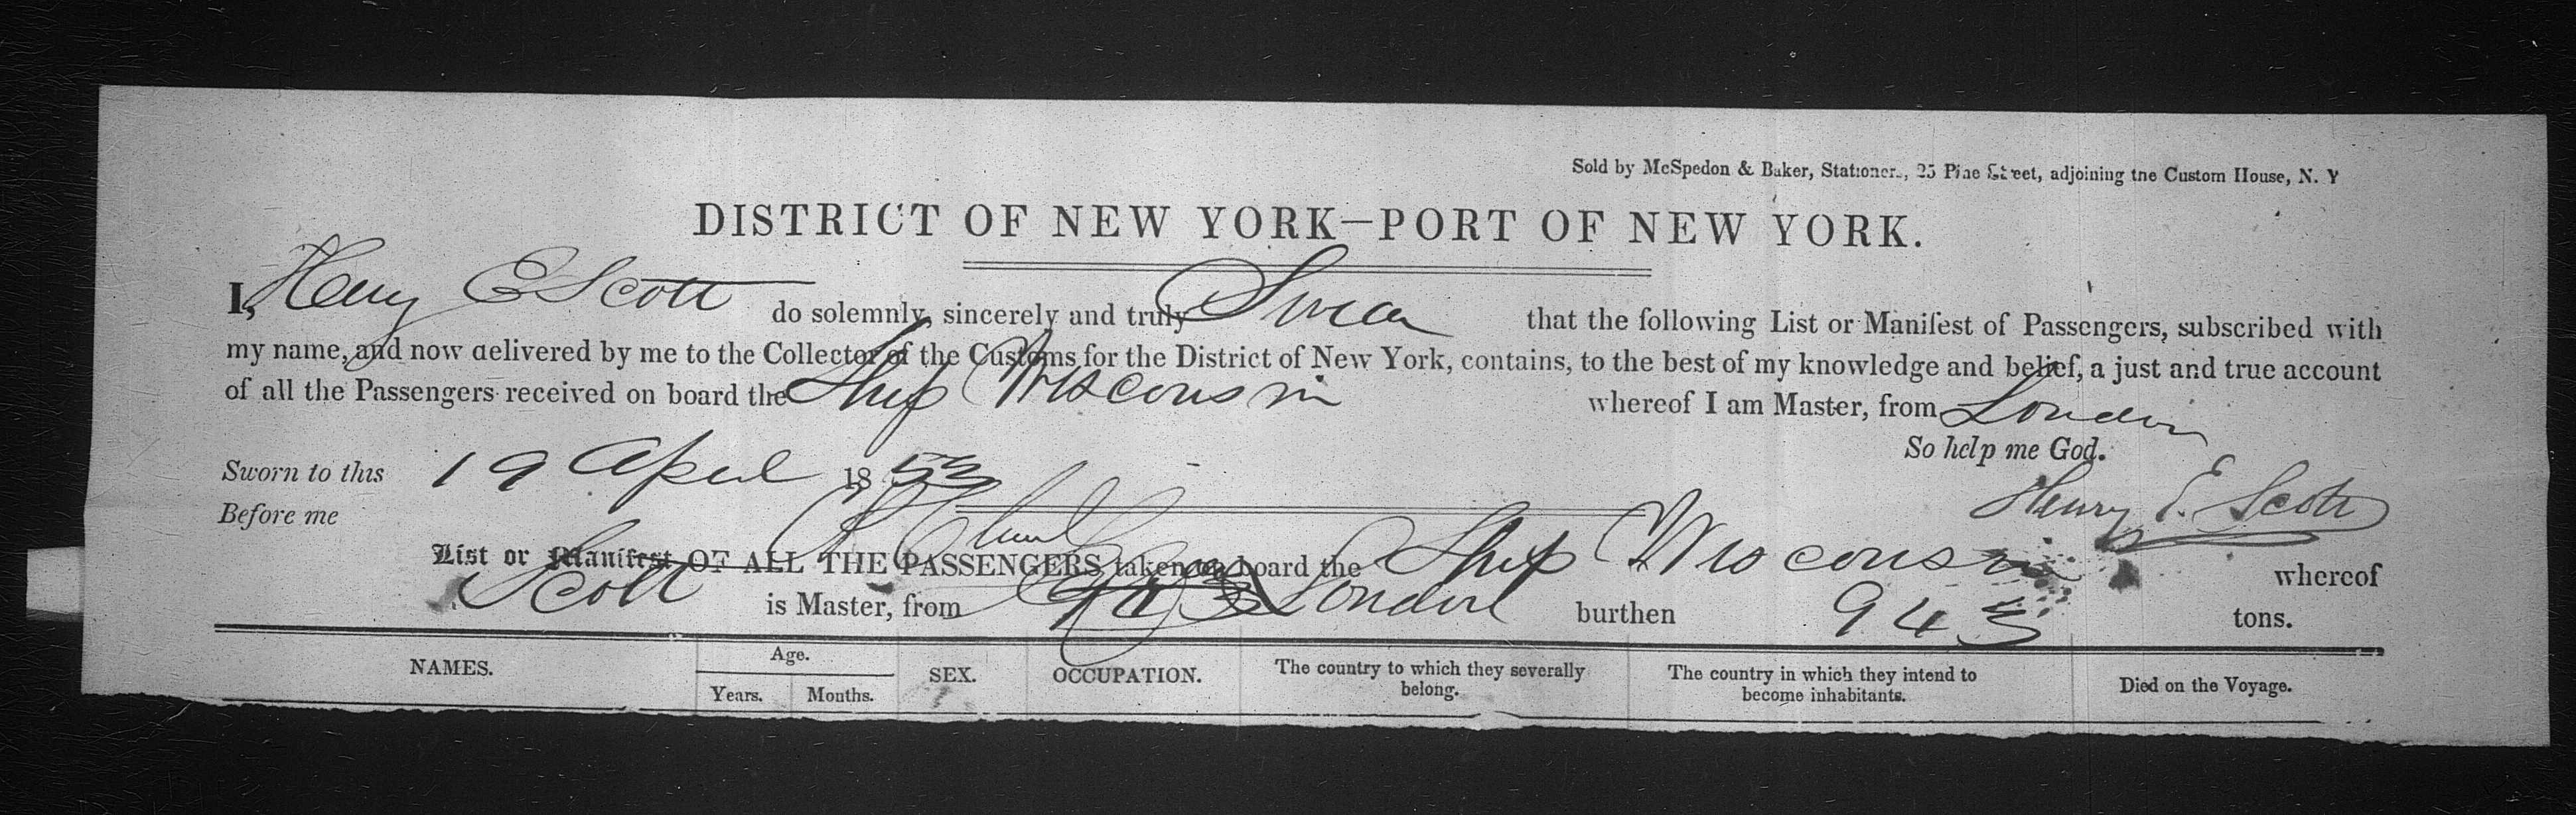 Sold by McSpedon & Baker, Stationers, 25 Pine Street, adjoining the Custom House, N. Y
DISTRICT OF NEW YORK—PORT OF NEW YORK.
I, Henry E Scott do solemnly, sincerely and truly Swear that the following List or Manifest of Passengers, subscribed with
my name, and now delivered by me to the Collector of the Customs for the District of New York, contains, to the best of my knowledge and belief, a just and true account
of all the Passengers received on board the Ship Wisconsin whereof I am Master, from London
So help me God.
Sworn to this 19 April 1853
Henry E. Scott
Before me
List or Manifest OF ALL THE PASSENGERS taken on board the Ship Wisconsin whereof
Scott is Master, from London burthen 943 tons.
NAMES. Age. SEX. OCCUPATION. The country to which they severally belong. The country in which they intend to become inhabitants. Died on the Voyage.
Years. Months.